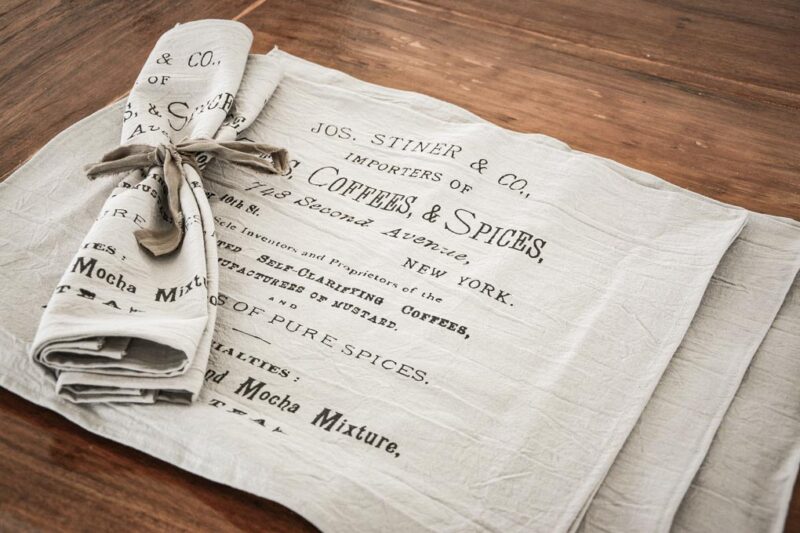 & CO.,
OF
& SPICE
Ave
PURE
IES:
Mocha Mixt
TEA
JOS. STINER & CO.,
IMPORTERS OF
COFFEES, & SPICES,
748 Second Avenue,
40th St.
NEW YORK.
Sole Inventors and Proprietors of the
TED SELF-CLARIFYING COFFEES,
UFACTURERS OF MUSTARD.
AND
S OF PURE SPICES.
IALTIES:
nd Mocha Mixture,
TEA